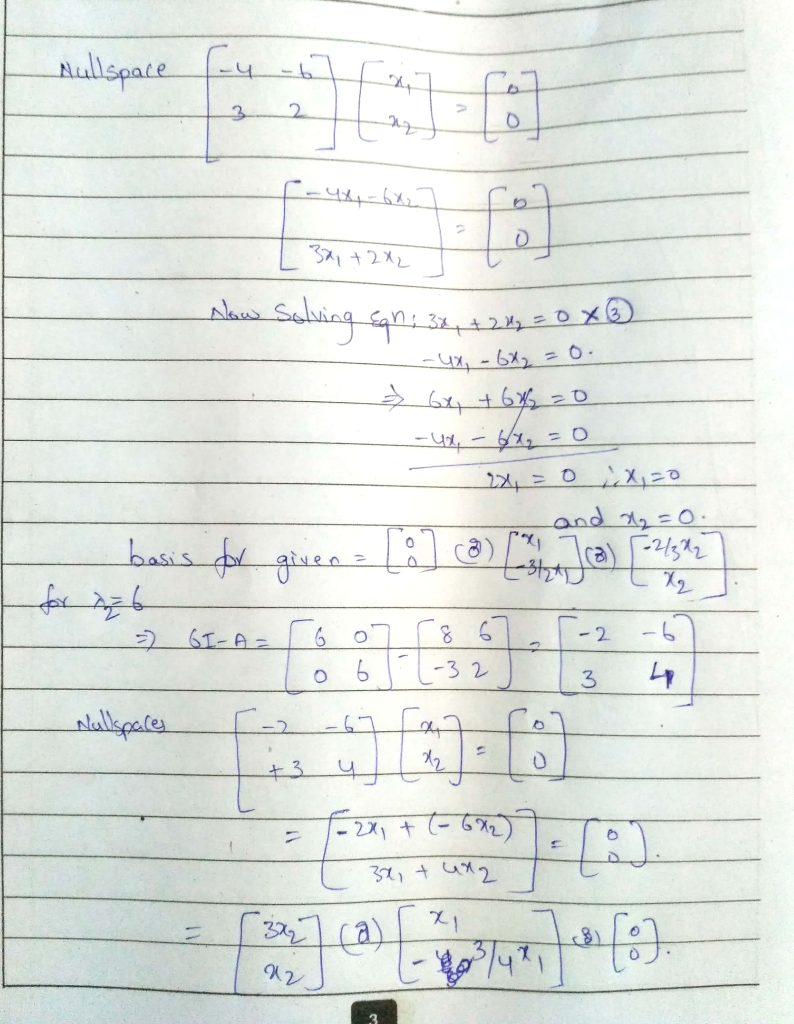 Nullspace [-4 -6; 3 2] [x₁; x₂] = [0; 0]
[-4x₁ - 6x₂; 3x₁ + 2x₂] = [0; 0]
Now Solving Eqn: 3x₁ + 2x₂ = 0 × ③
-4x₁ - 6x₂ = 0.
⇒ 6x₁ + 6x₂ = 0
-4x₁ - 6x₂ = 0
2x₁ = 0 ∴ x₁ = 0
and x₂ = 0.
basis for given = [0; 0] (or) [x₁; -3/2x₁] (or) [-2/3x₂; x₂]
for λ₂ = 6
⇒ 6I-A = [6 0; 0 6] - [8 6; -3 2] = [-2 -6; 3 4]
Nullspaces [-2 -6; +3 4] [x₁; x₂] = [0; 0]
= [-2x₁ + (-6x₂); 3x₁ + 4x₂] = [0; 0].
= [3x₂; x₂] (or) [x₁; -3/4x₁] (or) [0; 0].
3